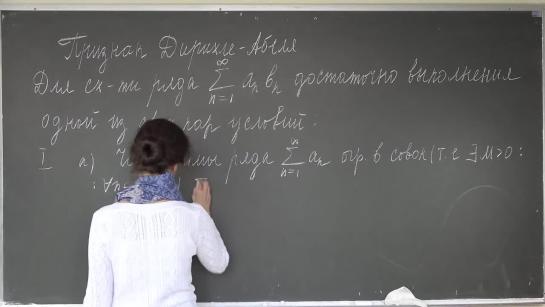 Признак Дирихле-Абеля
Для сх-ти ряда \sum_{n=1}^{\infty} a_n b_n достаточно выполнения
одной из пар условий:
I а) ряда \sum_{n=1}^{\infty} a_n огр. в совок (т.е ∃ M>0 :
: ∀n